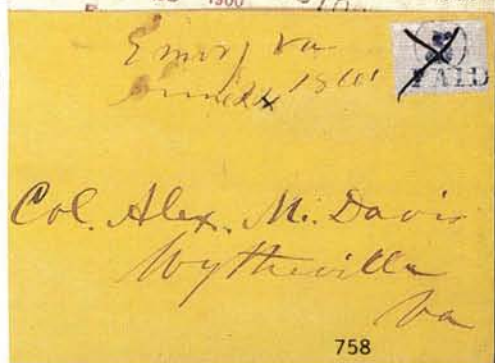 1900
Emory Va
1861
PAID
Col. Alex. M. Davis
Wytheville
Va
758